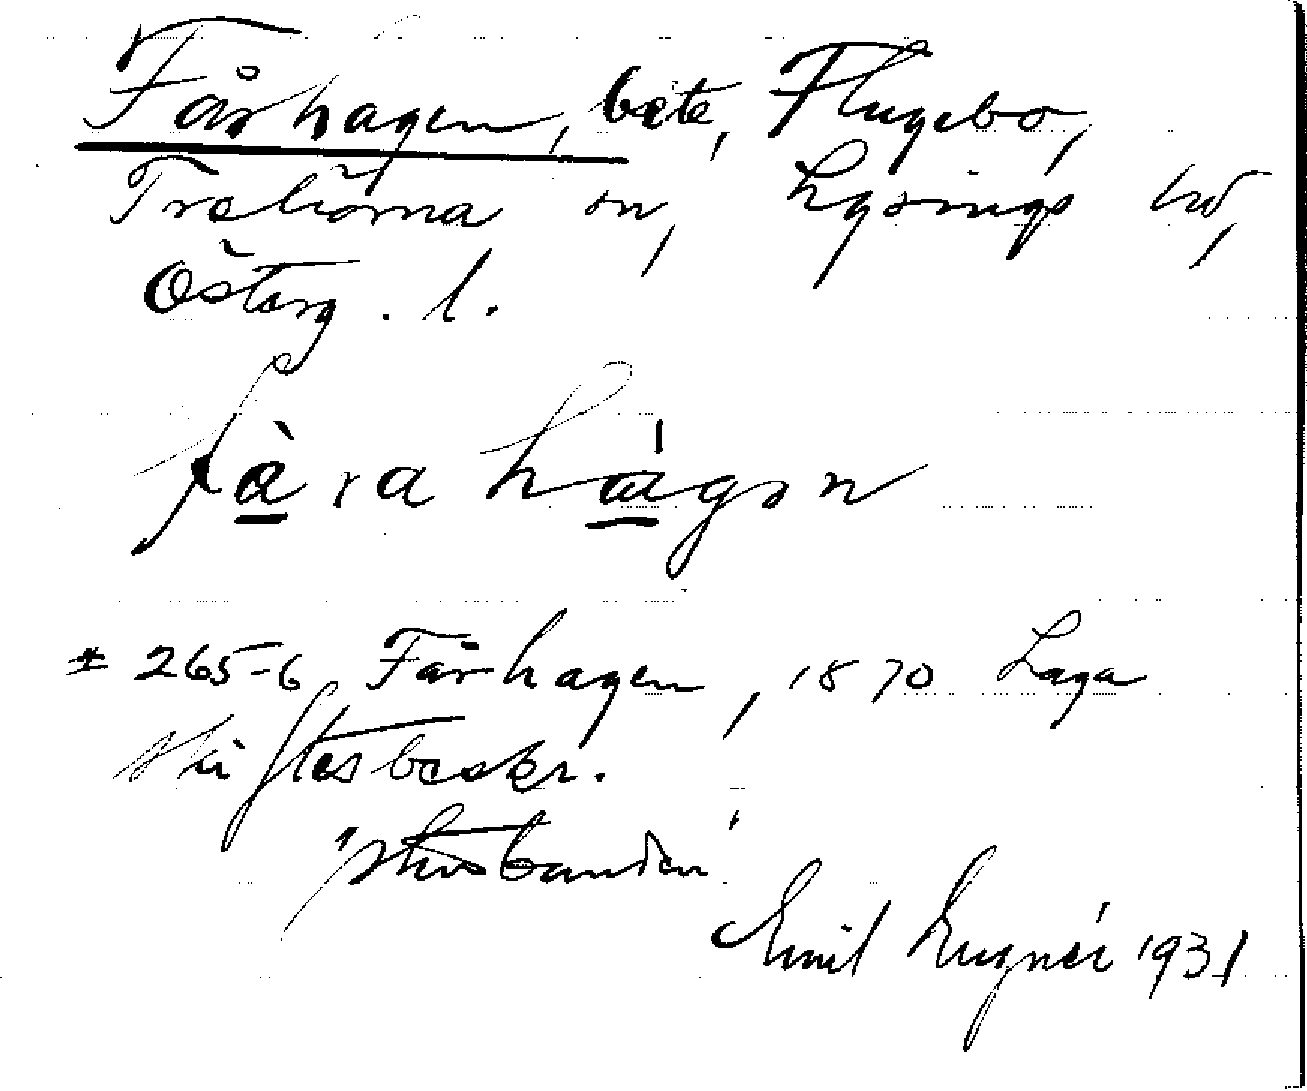 Fårhagen, bete, Flugebo,
Trehörna sn, Lysings hd,
Österg. l.
fàra hágen
± 265-6 Fårhagen, 1870 Laga
skiftesbeskr.
Emil Lugnér 1931